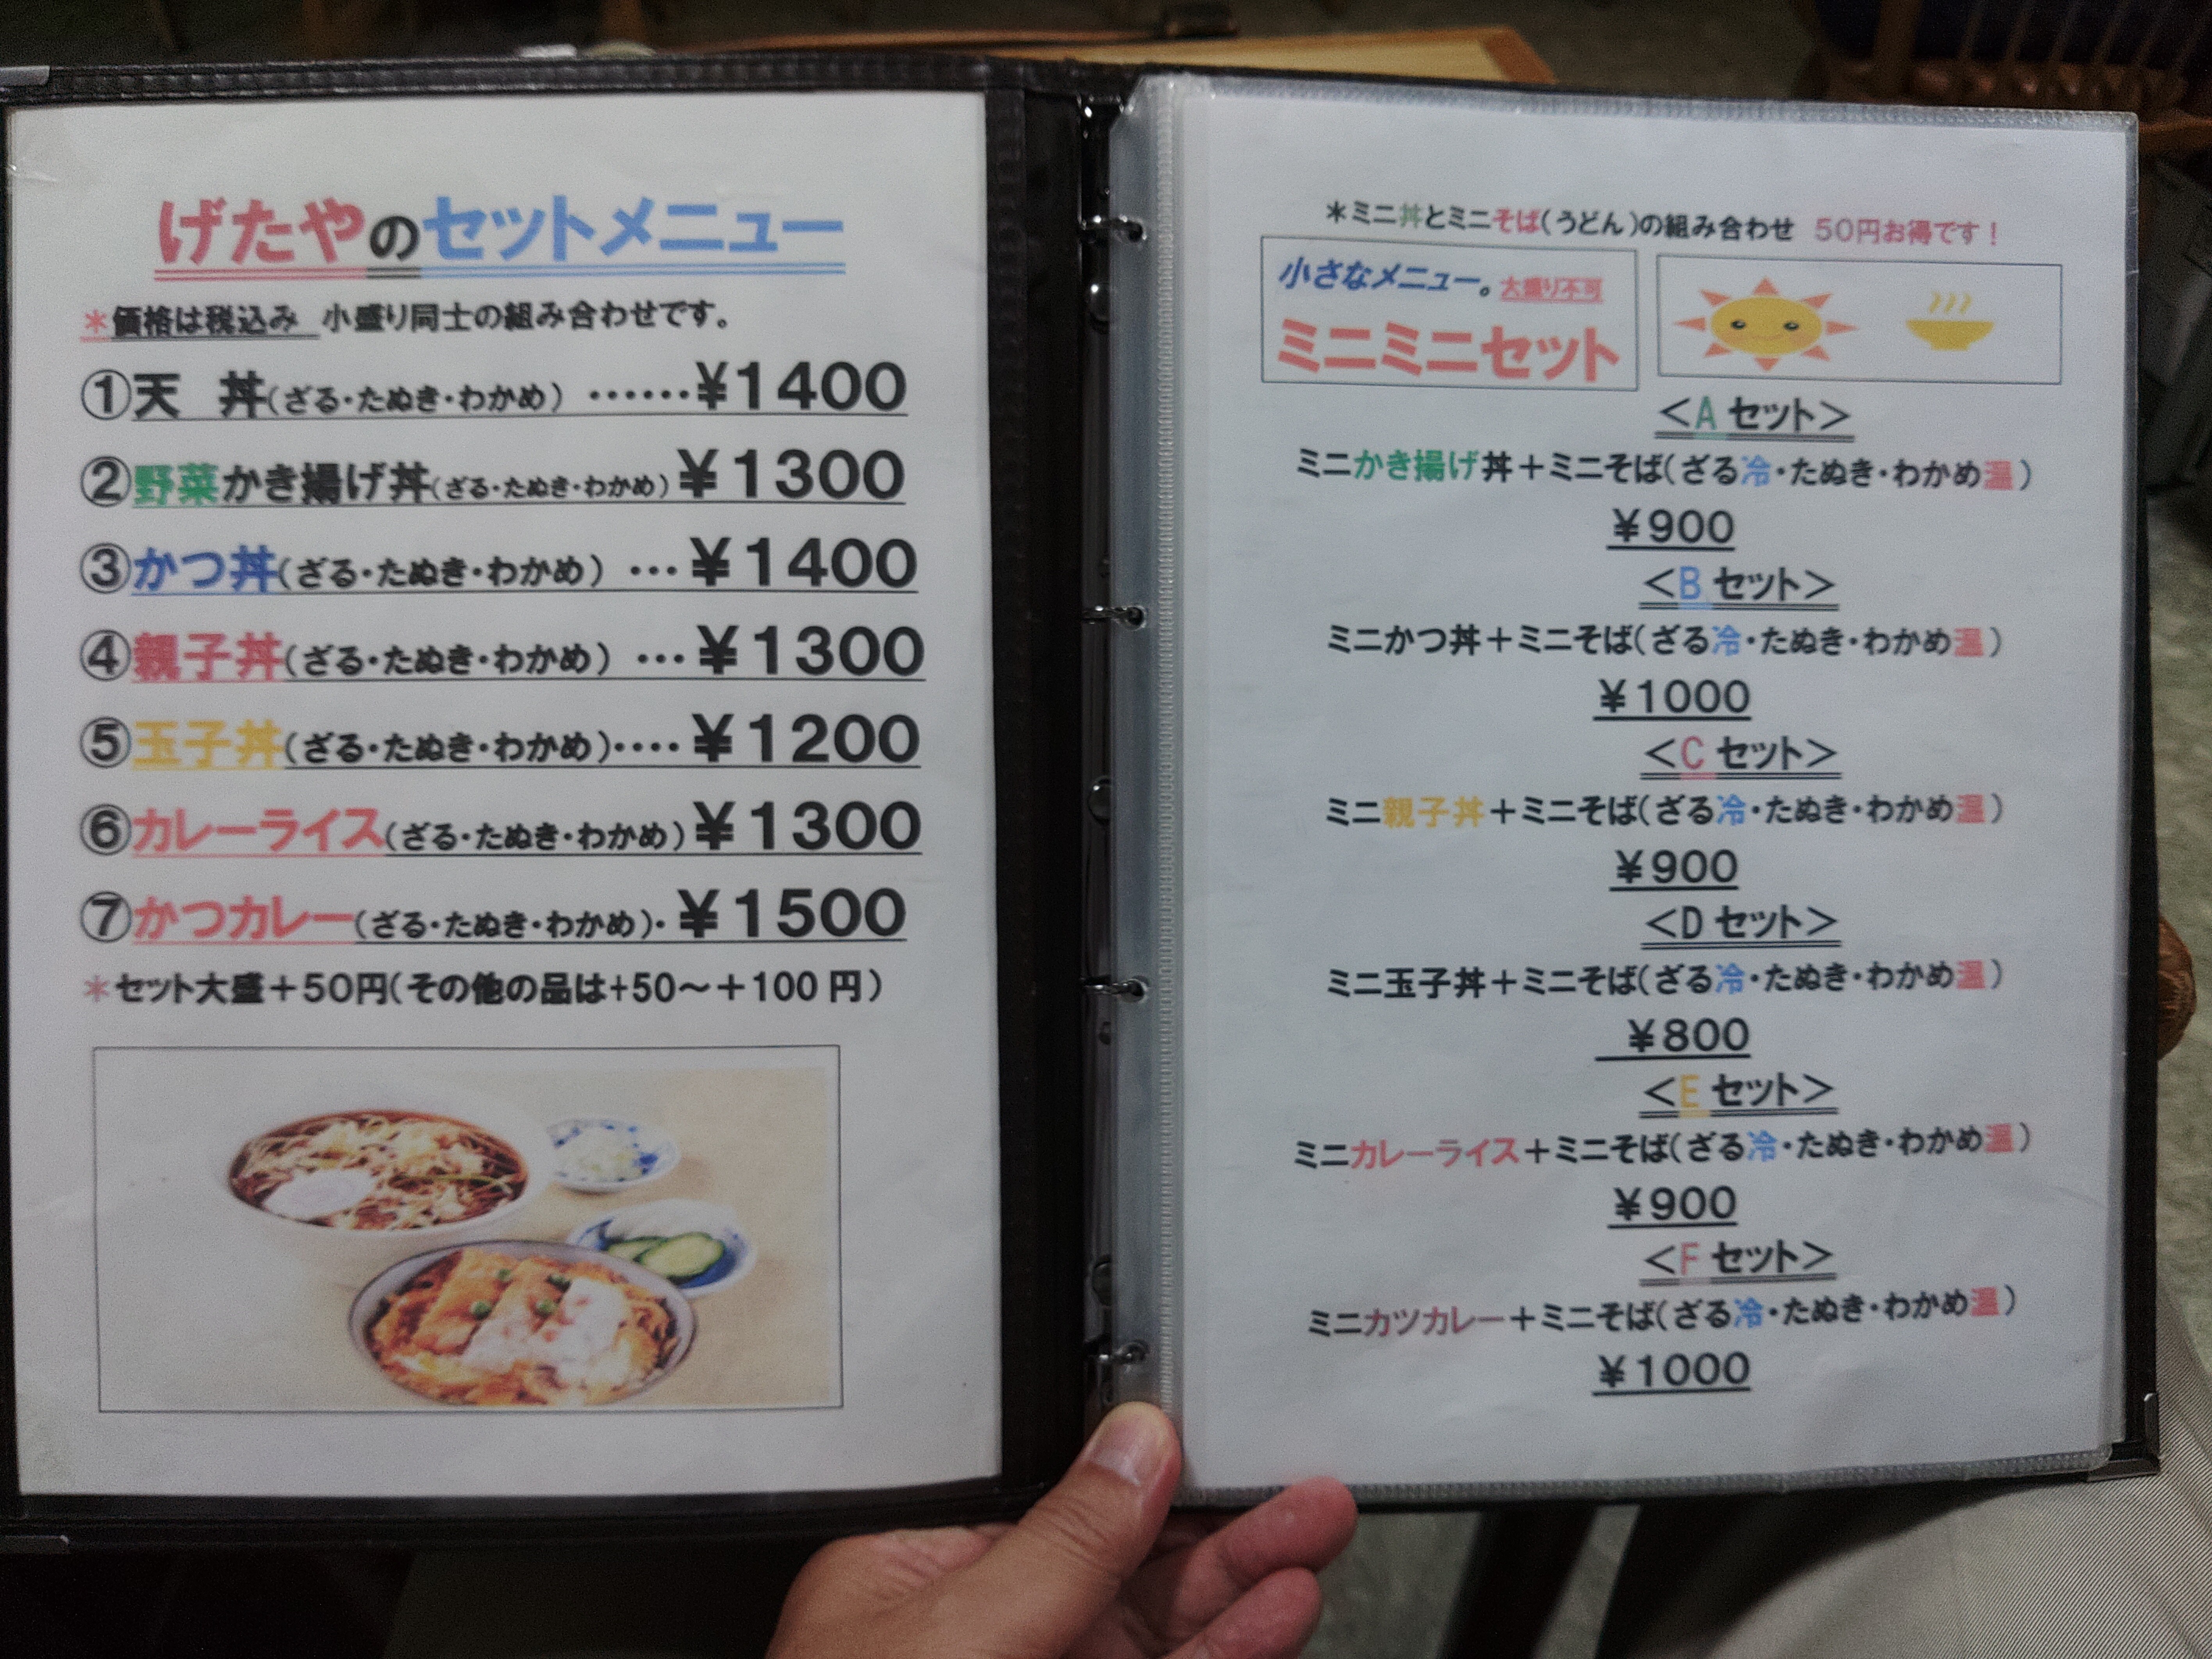 げたやのセットメニュー
*価格は税込み 小盛り同士の組み合わせです。
①天 丼(ざる・たぬき・わかめ) ……¥1400
②野菜かき揚げ丼(ざる・たぬき・わかめ)¥1300
③かつ丼(ざる・たぬき・わかめ) …¥1400
④親子丼(ざる・たぬき・わかめ) …¥1300
⑤玉子丼(ざる・たぬき・わかめ)‥‥¥1200
⑥カレーライス(ざる・たぬき・わかめ)¥1300
⑦かつカレー(ざる・たぬき・わかめ)・¥1500
*セット大盛+50円(その他の品は+50~+100円)
*ミニ丼とミニそば(うどん)の組み合わせ 50円お得です!
小さなメニュー。大盛り不可
ミニミニセット
<Aセット>
ミニかき揚げ丼+ミニそば(ざる冷・たぬき・わかめ温)
¥900
<Bセット>
ミニかつ丼+ミニそば(ざる冷・たぬき・わかめ温)
¥1000
<Cセット>
ミニ親子丼+ミニそば(ざる冷・たぬき・わかめ温)
¥900
<Dセット>
ミニ玉子丼+ミニそば(ざる冷・たぬき・わかめ温)
¥800
<Eセット>
ミニカレーライス+ミニそば(ざる冷・たぬき・わかめ温)
¥900
<Fセット>
ミニカツカレー+ミニそば(ざる冷・たぬき・わかめ温)
¥1000